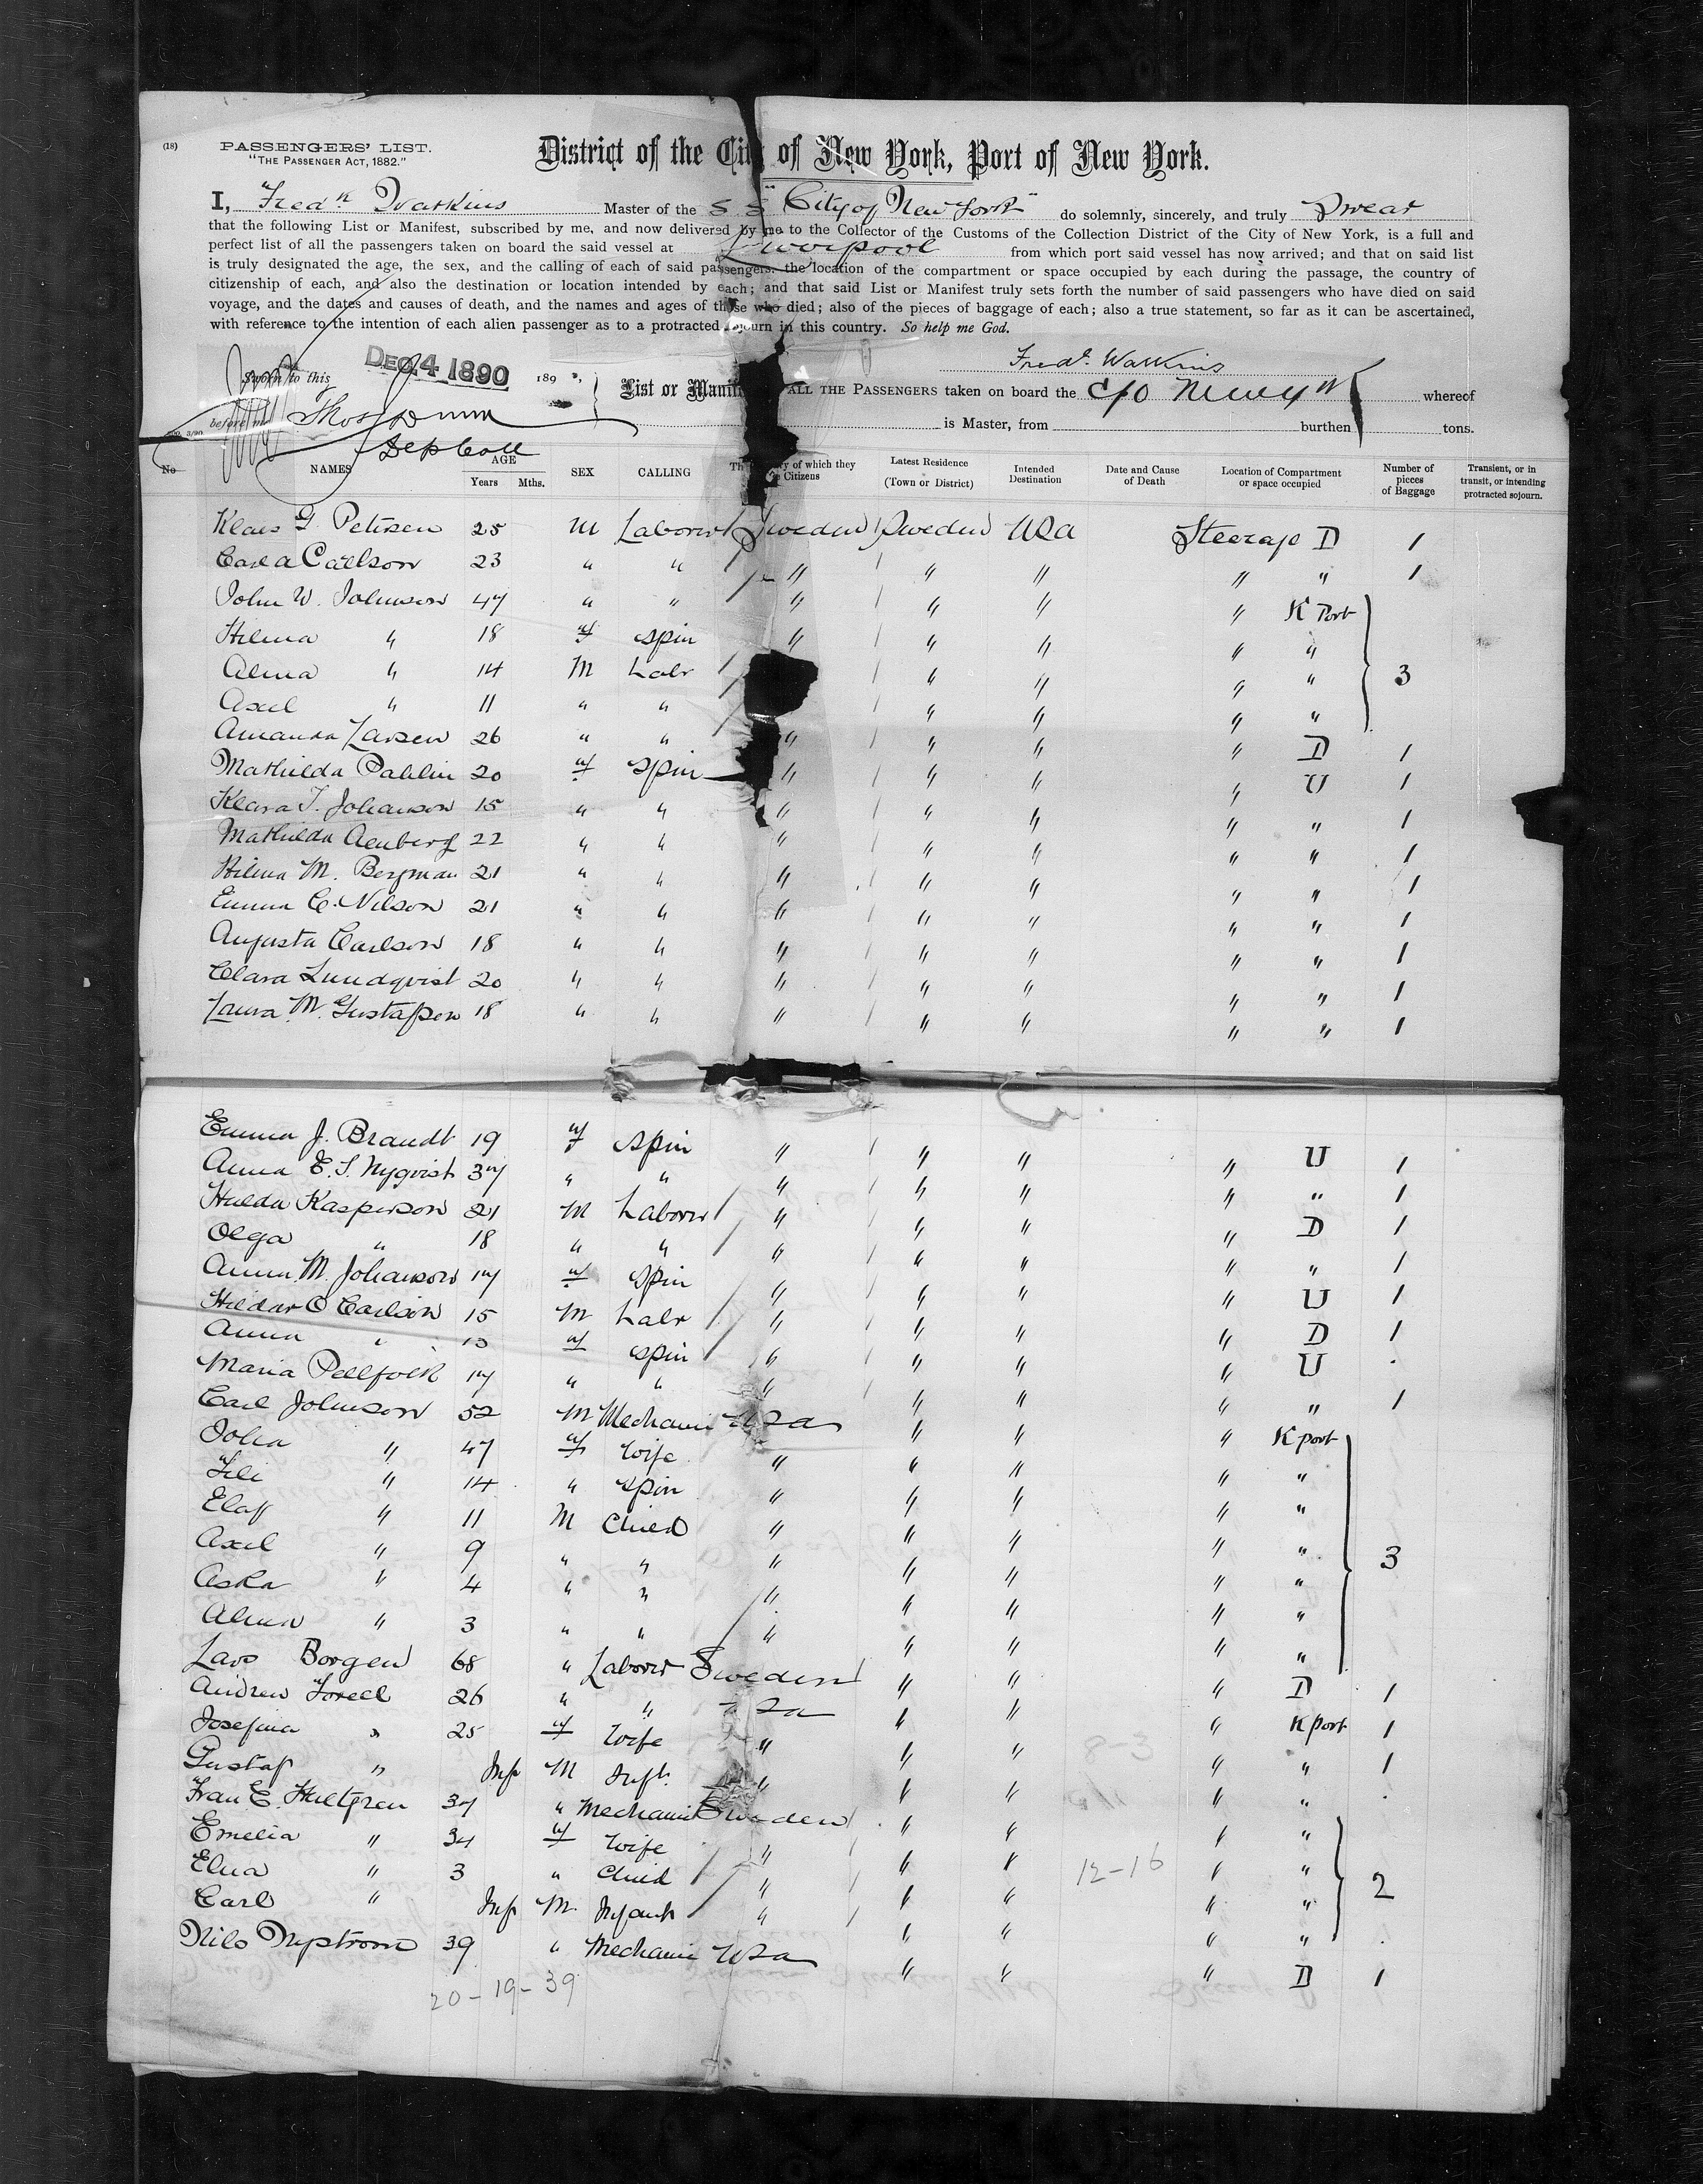 (18) PASSENGERS' LIST.
"THE PASSENGER ACT, 1882."
District of the City of New York, Port of New York.
I, Fredk Watkins Master of the S S "City of New York" do solemnly, sincerely, and truly Swear
that the following List or Manifest, subscribed by me, and now delivered by me to the Collector of the Customs of the Collection District of the City of New York, is a full and
perfect list of all the passengers taken on board the said vessel at Liverpool from which port said vessel has now arrived; and that on said list
is truly designated the age, the sex, and the calling of each of said passengers: the location of the compartment or space occupied by each during the passage, the country of
citizenship of each, and also the destination or location intended by each; and that said List or Manifest truly sets forth the number of said passengers who have died on said
voyage, and the dates and causes of death, and the names and ages of those who died; also of the pieces of baggage of each; also a true statement, so far as it can be ascertained,
with reference to the intention of each alien passenger as to a protracted sojourn in this country. So help me God.
Fredk. Watkins
Sworn to this DEC. 4 1890 189
before me Thos Dunn
Dep Coll
List or Manif ALL THE PASSENGERS taken on board the C/O New Y K whereof
is Master, from burthen tons.
No NAMES AGE Years Mths. SEX CALLING Th y of which they Citizens Latest Residence (Town or District) Intended Destination Date and Cause of Death Location of Compartment or space occupied Number of pieces of Baggage Transient, or in transit, or intending protracted sojourn.
Klaes G Petersen 25 M Laborer Sweden Sweden USA Steerage D 1
Carl A Carlson 23 " " " " " " " 1
John W. Johnson 47 " " " " " " K Port
Hilma " 18 f spin " " " " "
Alma " 14 M Labr " " " " 3
Axel " 11 " " " " " "
Amanda Larsen 26 " " " " " " D 1
Mathilda Pahlin 20 f spin " " " " U 1
Klara T. Johanson 15 " " " " " " " 1
Mathilda Aenberg 22 " " " " " " " 1
Hilma M. Bergman 21 " " " " " " " 1
Emma C. Nilson 21 " " " " " " " 1
Augusta Carlson 18 " " " " " " " 1
Clara Lundqvist 20 " " " " " " " 1
Laura M. Gustafson 18 " " " " " " " 1
Emma J. Brandt 19 f spin " " " " U 1
Anna E. S. Nyqvist 37 " " " " " " " 1
Hulda Kasperson 21 M Laborer " " " " D 1
Olga " 18 " " " " " " " 1
Anna M. Johanson 17 f spin " " " " U 1
Hildar O Carlson 15 M Labr " " " " D 1
Anna " 15 f spin " " " " U
Maria Pellfolk 17 " " " " " " " 1
Carl Johnson 52 M Mechanic USA " " " K port
Joha " 47 f Wife " " " " "
Lili " 14 " spin " " " " "
Elaf " 11 M Child " " " " "
Axel " 9 " " " " " " " 3
Aska " 4 " " " " " " "
Alman " 3 " " " " " " "
Lars Borgen 68 " Laborer Sweden " " " D 1
Andrew Forell 26 " " USA " " " K port 1
Josefina " 25 f Wife " " " " " 1
Gustaf " Inf M Inft. " " " " "
Fran E. Hultgren 37 " Mechanic Sweden " " " "
Emelia " 34 f Wife " " " " "
Elna " 3 " Child " " 12-16 " " 2
Carl " Inf M. Infant " " " " "
Nils Nystrom 39 " Mechanic USA " " " D 1
20-19-39